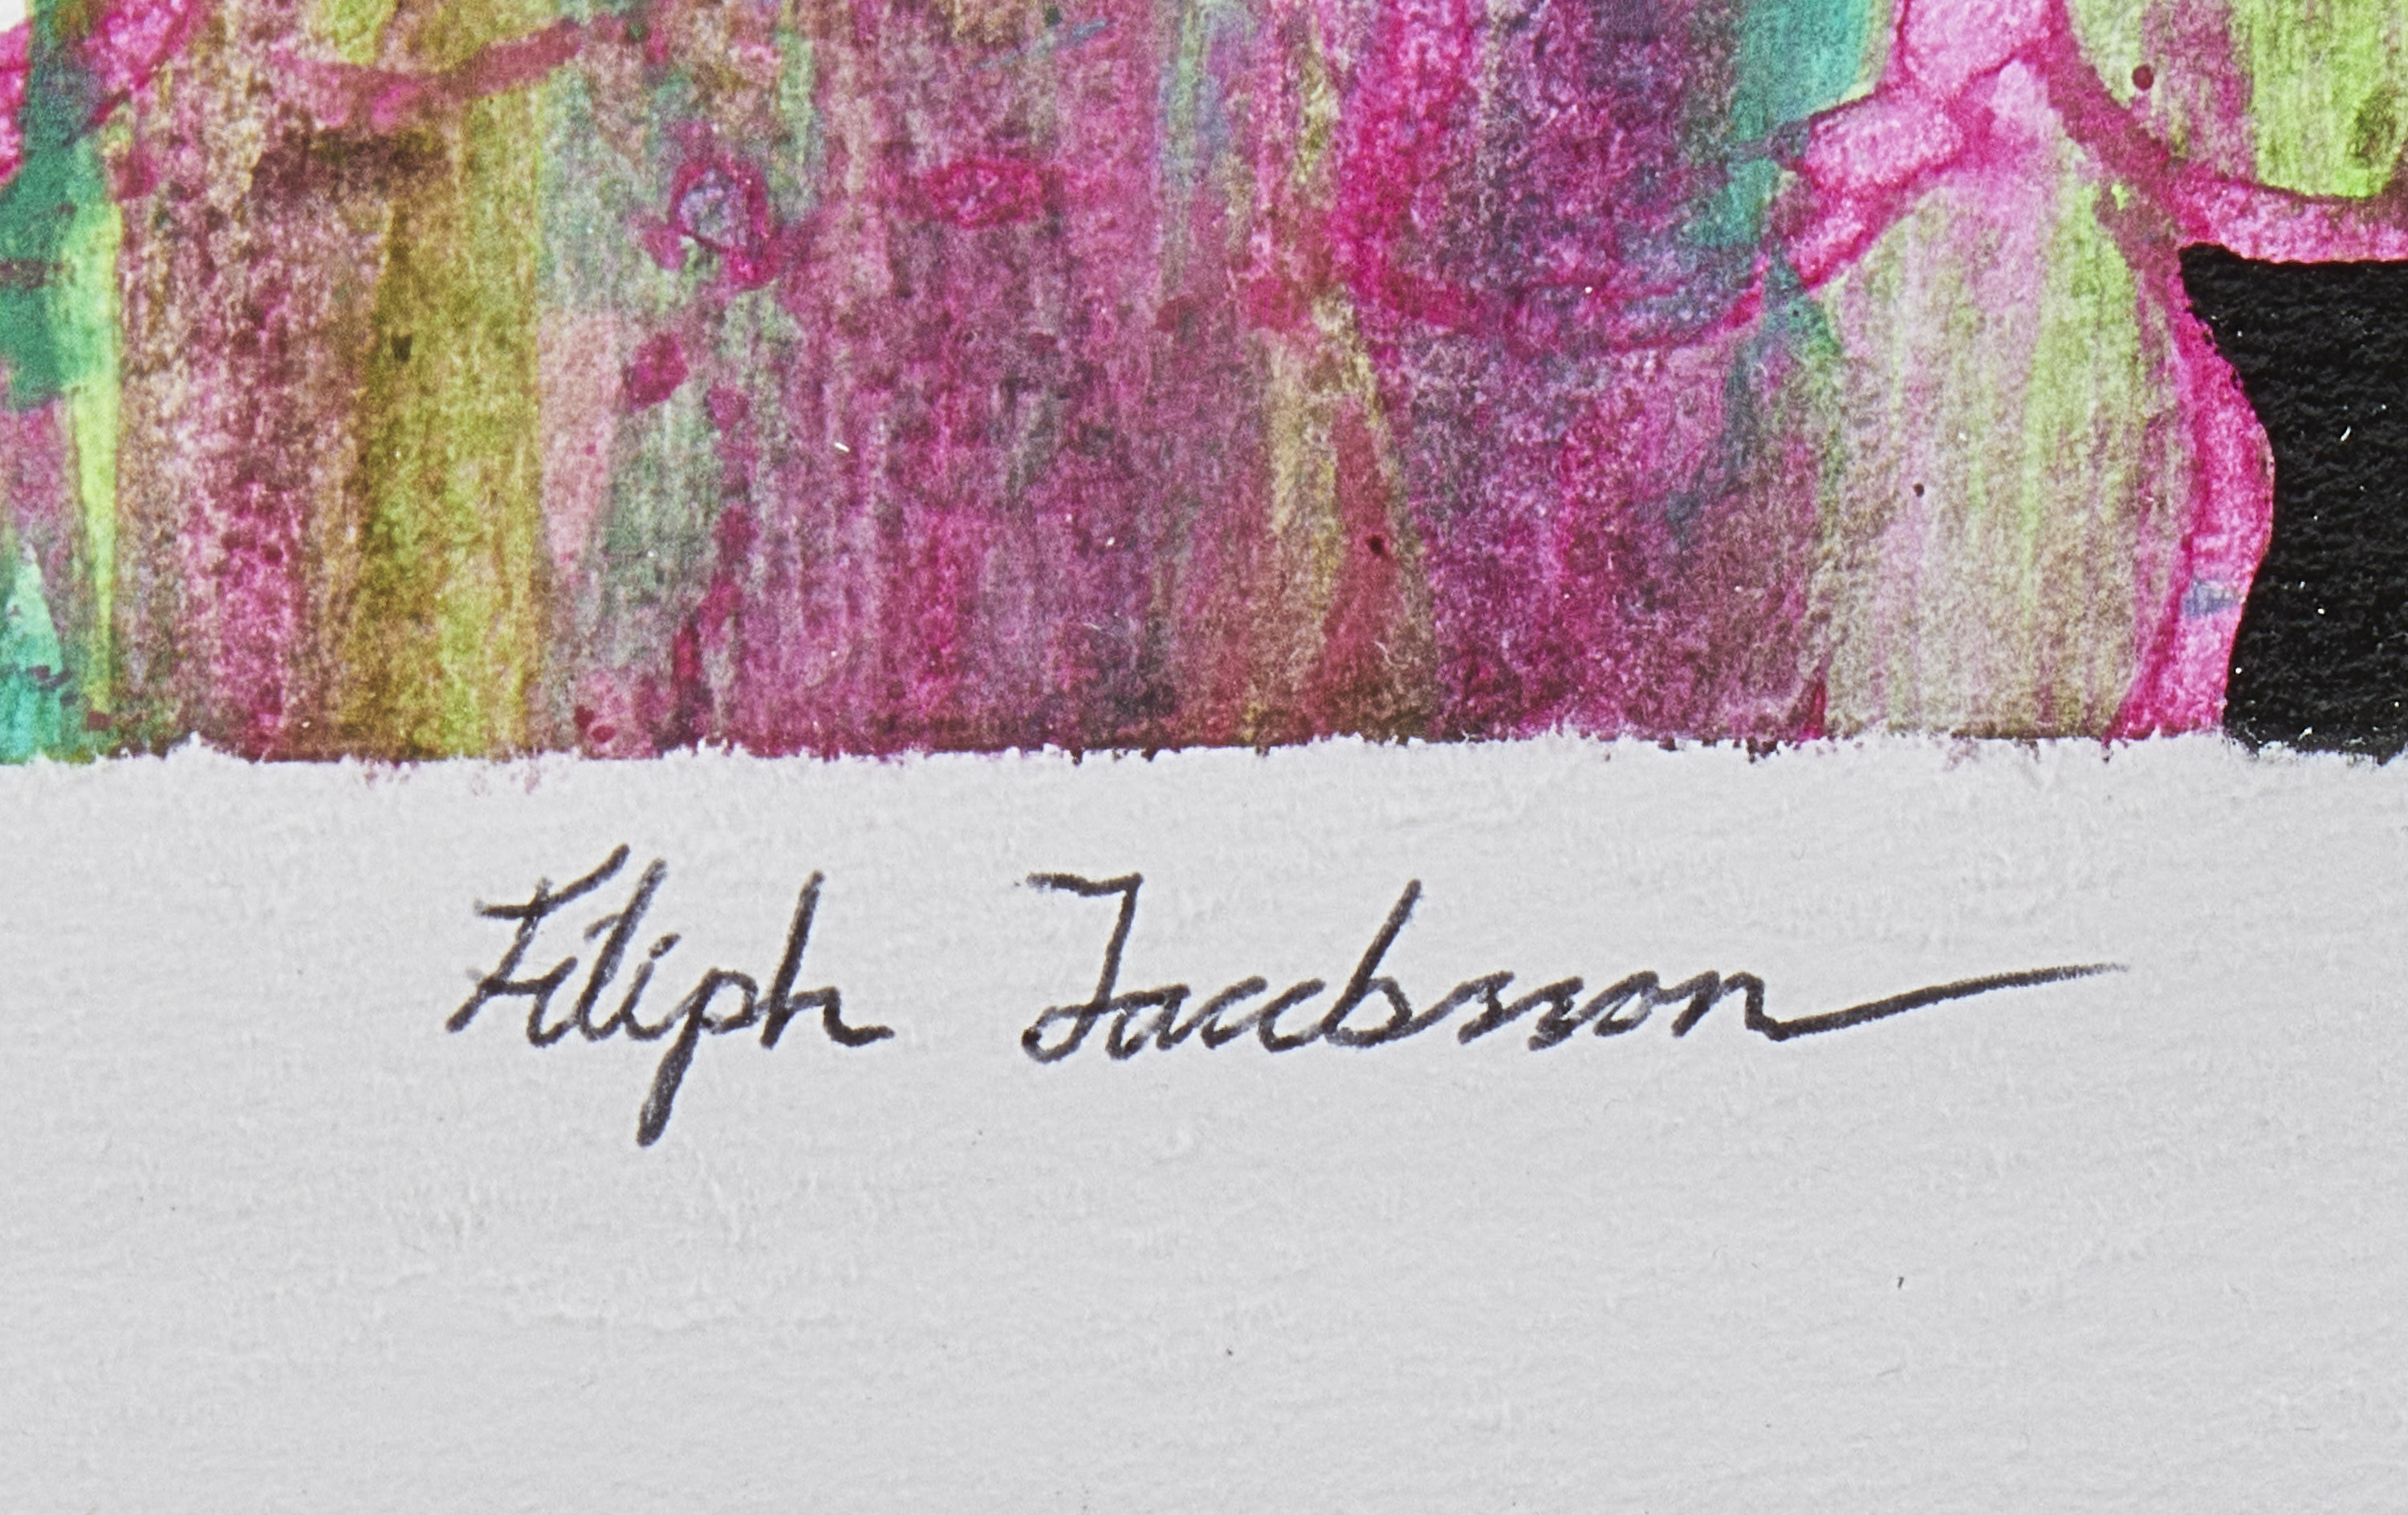 Filiph Jacobsson